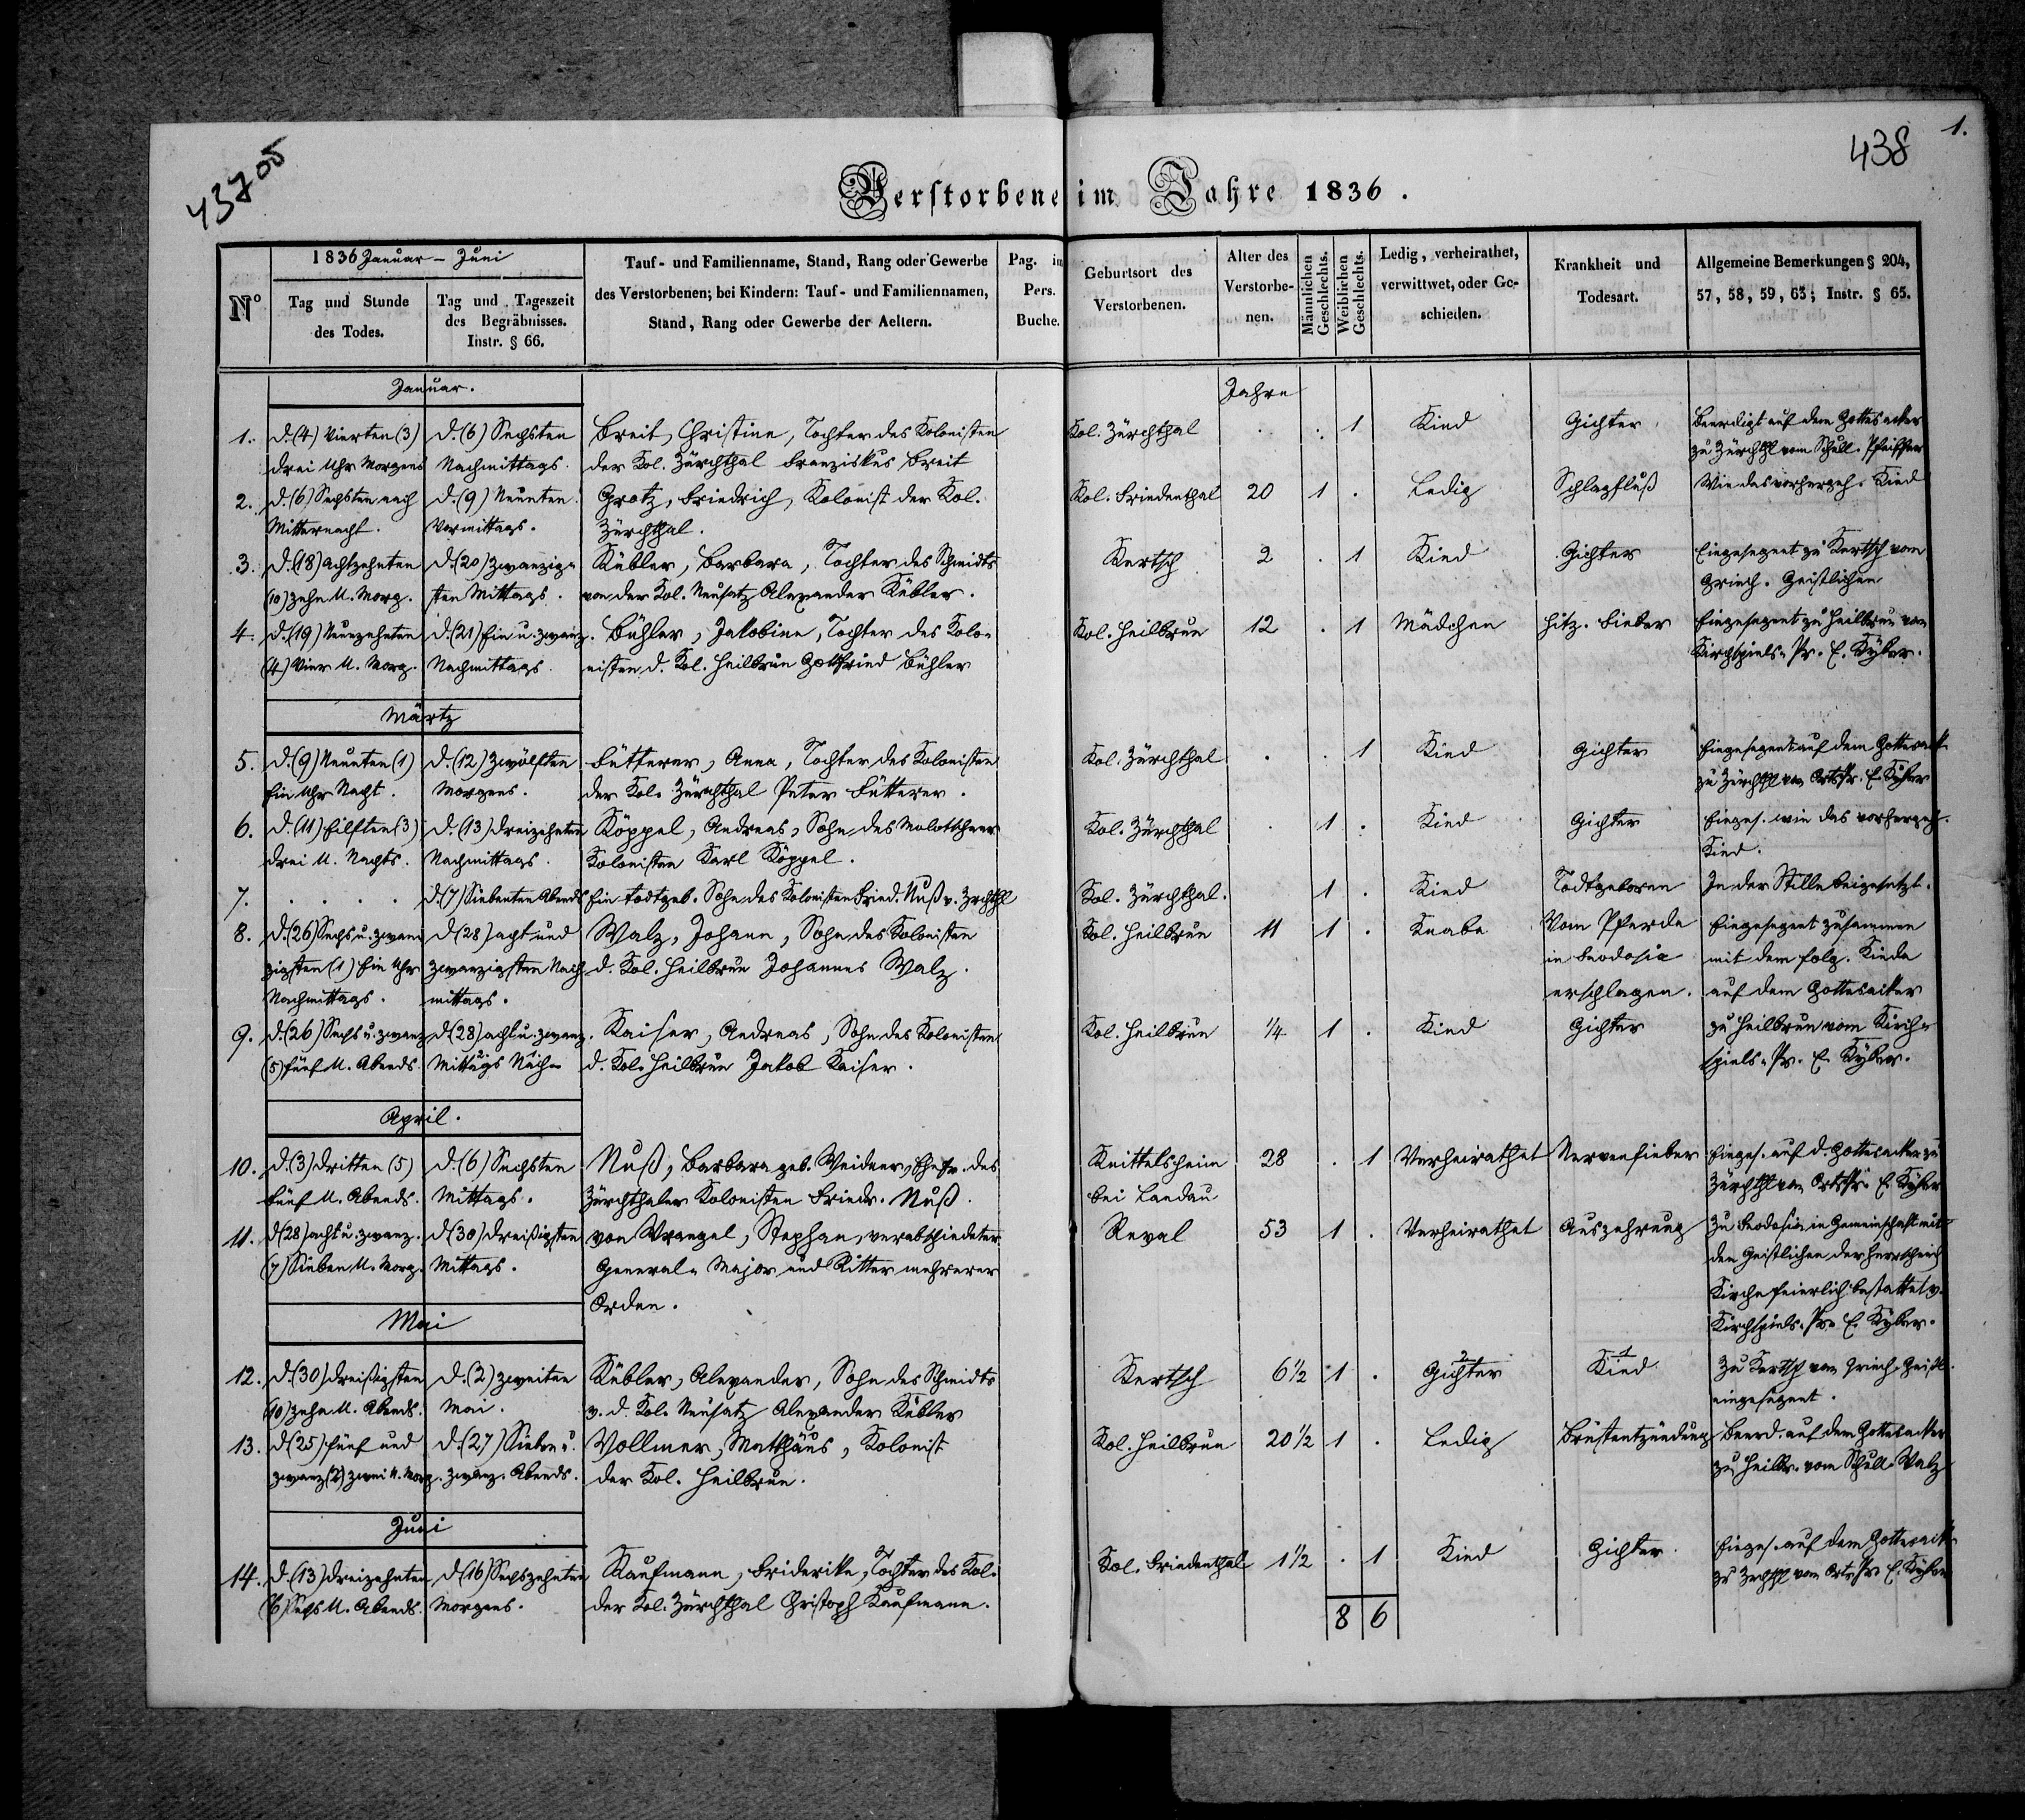 43705
438
1.
Verstorbene im Jahre 1836.
Nº
1836 Januar – Juni
Tag und Stunde
des Todes.
Tag und Tageszeit
des Begräbnisses.
Instr. § 66.
Tauf- und Familienname, Stand, Rang oder Gewerbe
des Verstorbenen; bei Kindern: Tauf- und Familiennamen,
Stand, Rang oder Gewerbe der Aeltern.
Pag. im
Pers.
Buche.
Geburtsort des
Verstorbenen.
Alter des
Verstorbe-
nen.
Männlichen
Geschlechts.
Weiblichen
Geschlechts.
Ledig, verheirathet,
verwittwet, oder Ge-
schieden.
Krankheit und
Todesart.
Allgemeine Bemerkungen § 204,
57, 58, 59, 63; Instr. § 65.
Januar.
Jahre
1. d. (4) Vierten (3) d. (6) Sechsten Breit, Christine, Tochter des Kolonisten Kol. Zürchthal . . 1 Kind Gichter Beerdigt auf dem Gottesacker
drei Uhr Morgens Nachmittags. der Kol. Zürchthal Franziskus Breit zu Zürchthl vom Schull. Pfeiffer
2. d. (6) Sechsten nach d. (9) Neunten Grotz, Friedrich, Kolonist der Kol. Kol. Friedenthal 20 1 . Ledig Schlagfluß Wie das vorhergeh. Kind
Mitternacht. Vormittags. Zürchthal.
3. d. (18) achtzehnten d. (20) zwanzig- Kübler, Barbara, Tochter des Schmidts Kertsch 2 . 1 Kind Gichter Eingesegnet zu Kertsch vom
(10) zehn U. Morg. sten Mittags. von der Kol. Neusatz Alexander Kübler. Griech. Geistlichen
4. d. (19) Neunzehnten d. (21) Ein u. zwanz. Bühler, Jakobine, Tochter des Kolo- Kol. Heilbrun 12 . 1 Mädchen Hitz. Fieber Eingesegnet zu Heilbrun von
(4) Vier U. Morg. Nachmittags. nisten d. Kol. Heilbrun Gottfried Bühler Kirchspiels-Pr. E. Kyber.
Märtz
5. d. (9) Neunten (1) d. (12) zwölften Fütterer, Anna, Tochter des Kolonisten Kol. Zürchthal . . 1 Kind Gichter Eingesegnet auf dem Gottesack.
Ein Uhr Nacht. Morgens. der Kol. Zürchthal Peter Fütterer. zu Zürchthl von Ortspr. E. Kyber
6. d. (11) Eilften (3) d. (13) dreizehnten Köppel, Andreas, Sohn des Molotschner Kol. Zürchthal . 1 . Kind Gichter Einges. wie das vorhergeh.
drei U. Nachts. Nachmittags. Kolonisten Karl Köppel. Kind.
7. . . . . d. (7) Siebenten Abends Ein todtgeb. Sohn des Kolonisten Fried. Nuß v. Zrchthl Kol. Zürchthal. 1 . Kind Todtgeboren In der Stille beigesetzt.
8. d. (26) Sechs u. zwan- d. (28) acht und Walz, Johann, Sohn des Kolonisten Kol. Heilbrun 11 1 . Knabe Vom Pferde Eingesegnet zusammen
zigsten (1) Ein Uhr zwanzigsten Nach- d. Kol. Heilbrun Johannes Walz. in Feodosia mit dem folg. Kinde
Nachmittags. mittags. erschlagen. auf dem Gottesacker
9. d. (26) Sechs u. zwanz. d. (28) acht u. zwanz. Kaiser, Andreas, Sohn des Kolonisten Kol. Heilbrun 1/4 1 . Kind Gichter zu Heilbrun vom Kirch-
(5) fünf U. Abends. Mittags Nach- d. Kol. Heilbrun Jakob Kaiser. spiels-Pr. E. Kyber.
April.
10. d. (3) dritten (5) d. (6) Sechsten Nuß, Barbara geb. Weidner, Ehefr. des Knittelsheim 28 . 1 Verheirathet Nervenfieber Einges. auf d. Gottesacker zu
fünf U. Abends. Mittags. Zürchthaler Kolonisten Friedr. Nuß. bei Landau Zürchthl von Ortspr. E. Kyber
11. d. (28) acht u. zwanz. d. (30) dreißigsten von Wrangel, Stephan, verabschiedeter Reval 53 1 . Verheirathet Auszehrung Zu Feodosia in Gemeinschaft mit
(7) Sieben U. Morg. Mittags. General-Major und Ritter mehrerer den Geistlichen der herrschend.
Orden. Kirche feierlich bestattet v.
Kirchspiels-Pr. E. Kyber.
Mai
12. d. (30) dreißigsten d. (2) zweiten Kübler, Alexander, Sohn des Schmidts Kertsch 6 1/2 1 . 2 Gichter 1 Kind Zu Kertsch vom Griech. Geistl.
(10) zehn U. Abends. Mai. v. d. Kol. Neusatz Alexander Kübler eingesegnet.
13. d. (25) fünf und d. (27) Sieben u. Vollmer, Matthäus, Kolonist Kol. Heilbrun 20 1/2 1 . Ledig Brustentzündung Beerd. auf dem Gottesacker
zwanz. (2) zwei U. Morg. zwanz. Abends. der Kol. Heilbrun. zu Heilbr. vom Schull. Walz
Juni
14. d. (13) dreizehnten d. (16) Sechszehnten Kaufmann, Friderike, Tochter des Kol. Kol. Friedenthal 1 1/2 . 1 Kind Gichter. Einges. auf dem Gottesack.
(6) Sechs U. Abends. Morgens. der Kol. Zürchthal Christoph Kaufmann. zu Zrchthl vom Ortspr. E. Kyber
8 6